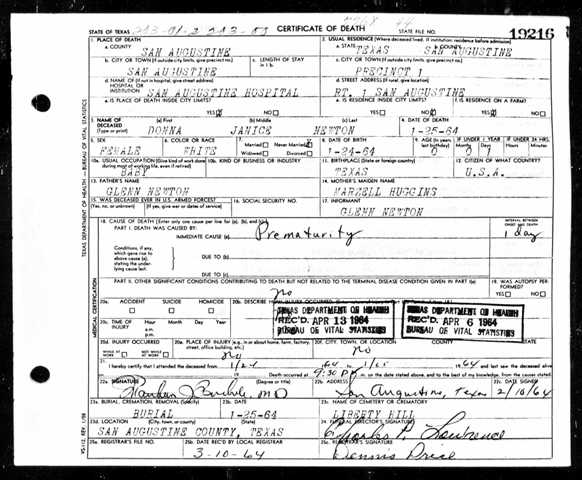 STATE OF TEXAS CERTIFICATE OF DEATH STATE FILE NO. 19216
1. PLACE OF DEATH 2. USUAL RESIDENCE (Where deceased lived. If institution: residence before admission)
a. COUNTY SAN AUGUSTINE a. STATE TEXAS b. COUNTY SAN AUGUSTINE
b. CITY OR TOWN (If outside city limits, give precinct no.) c. LENGTH OF STAY in 1 b. c. CITY OR TOWN (If outside city limits, give precinct no.)
SAN AUGUSTINE PRECINCT 1
d. NAME OF (If not in hospital, give street address) HOSPITAL OR INSTITUTION d. STREET ADDRESS (If rural, give location)
SAN AUGUSTINE HOSPITAL RT. 1 SAN AUGUSTINE
e. IS PLACE OF DEATH INSIDE CITY LIMITS? e. IS RESIDENCE INSIDE CITY LIMITS? f. IS RESIDENCE ON A FARM?
YES NO YES NO YES NO
3. NAME OF DECEASED (Type or print) (a) First (b) Middle (c) Last 4. DATE OF DEATH
DONNA JANICE NEWTON 1-25-64
5. SEX 6. COLOR OR RACE 7. Married Never Married Widowed Divorced 8. DATE OF BIRTH 9. AGE (In years last birthday) IF UNDER 1 YEAR IF UNDER 24 HRS.
Months Days Hours Minutes
FEMALE WHITE 1-24-64 0 0 1
10a. USUAL OCCUPATION (Give kind of work done during most of working life, even if retired) 10b. KIND OF BUSINESS OR INDUSTRY 11. BIRTHPLACE (State or foreign country) 12. CITIZEN OF WHAT COUNTRY?
BABY TEXAS U.S.A.
13. FATHER'S NAME 14. MOTHER'S MAIDEN NAME
GLENN NEWTON MARZELL HUGGINS
15. WAS DECEASED EVER IN U.S. ARMED FORCES? (Yes, no, or unknown) (If yes, give war or dates of service) 16. SOCIAL SECURITY NO. 17. INFORMANT
GLENN NEWTON
18. CAUSE OF DEATH [Enter only one cause per line for (a), (b), and (c).] INTERVAL BETWEEN ONSET AND DEATH
PART I. DEATH WAS CAUSED BY:
IMMEDIATE CAUSE (a) Prematurity 1 day
Conditions, if any, which gave rise to above cause (a), stating the underlying cause last.
DUE TO (b)
DUE TO (c)
PART II. OTHER SIGNIFICANT CONDITIONS CONTRIBUTING TO DEATH BUT NOT RELATED TO THE TERMINAL DISEASE CONDITION GIVEN IN PART I(a) 19. WAS AUTOPSY PERFORMED?
no YES NO
20a. ACCIDENT SUICIDE HOMICIDE 20b. DESCRIBE HOW INJURY OCCURRED
TEXAS DEPARTMENT OF HEALTH
REC'D. APR 13 1964
BUREAU OF VITAL STATISTICS
TEXAS DEPARTMENT OF HEALTH
REC'D. APR 6 1964
BUREAU OF VITAL STATISTICS
20c. TIME OF INJURY Hour Month Day Year
a.m.
p.m.
20d. INJURY OCCURRED 20e. PLACE OF INJURY (e.g., in or about home, farm, factory, street, office building, etc.) 20f. CITY, TOWN, OR LOCATION COUNTY STATE
WHILE AT WORK NOT WHILE AT WORK no no
21. I hereby certify that I attended the deceased from
Death occurred at 9:30 P m. on the date stated above, and to the best of my knowledge, from the causes stated.
22a. SIGNATURE (Degree or title) 22b. ADDRESS 22c. DATE SIGNED
MD San Augustine, Texas 2/10/64
23a. BURIAL, CREMATION, REMOVAL (Specify) 23b. DATE 23c. NAME OF CEMETERY OR CREMATORY
BURIAL 1-25-64 LIBERTY HILL
23d. LOCATION (City, town, or county) (State) 24. FUNERAL DIRECTOR'S SIGNATURE
SAN AUGUSTINE COUNTY, TEXAS Charles P. Lawrence
25a. REGISTRAR'S FILE NO. 25b. DATE REC'D BY LOCAL REGISTRAR 25c. REGISTRAR'S SIGNATURE
3-10-64 Dennis Price
TEXAS DEPARTMENT OF HEALTH—BUREAU OF VITAL STATISTICS
MEDICAL CERTIFICATION